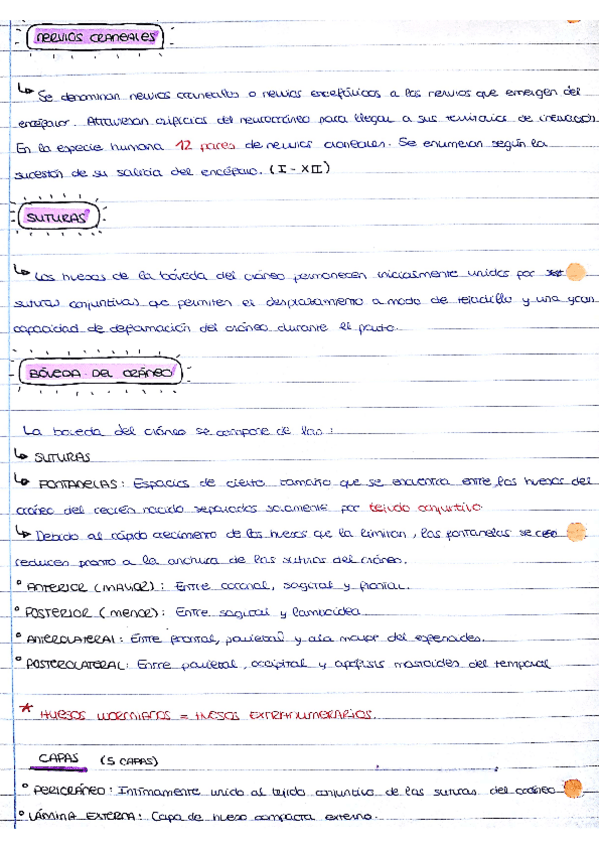 NERVIOS CRANEALES
↳ Se denominan nervios craneales o nervios encefálicos a los nervios que emergen del
encéfalo. Atraviesan orificios del neurocráneo para llegar a sus territorios de inervación.
En la especie humana 12 pares de nervios craneales. Se enumeran según la
sucesión de su salida del encéfalo. (I - XII)
SUTURAS
↳ Los huesos de la bóveda del cráneo permanecen inicialmente unidos por
suturas conjuntivas que permiten el desplazamiento a modo de tejadillo y una gran
capacidad de deformación del cráneo durante el parto.
BÓVEDA DEL CRÁNEO
La boveda del cráneo se compone de las:
↳ SUTURAS
↳ FONTANELAS: Espacios de cierto tamaño que se encuentra entre los huesos del
cráneo del recién nacido separados solamente por tejido conjuntivo.
↳ Debido al rápido crecimiento de los huesos que la limitan, las fontanelas se
reducen pronto a la anchura de las suturas del cráneo.
° ANTERIOR (MAYOR): Entre coronal, sagital y frontal.
° POSTERIOR (MENOR): Entre sagital y lamboidea
° ANTEROLATERAL: Entre frontal, parietal y ala mayor del esfenoides.
° POSTEROLATERAL: Entre parietal, occipital y apófisis mastoides del temporal
* HUESOS WORMIANOS = HUESOS EXTRANUMERARIOS.
CAPAS (5 CAPAS)
° PERICRÁNEO: Íntimamente unido al tejido conjuntivo de las suturas del cráneo
° LÁMINA EXTERNA: Capa de hueso compacta externo.